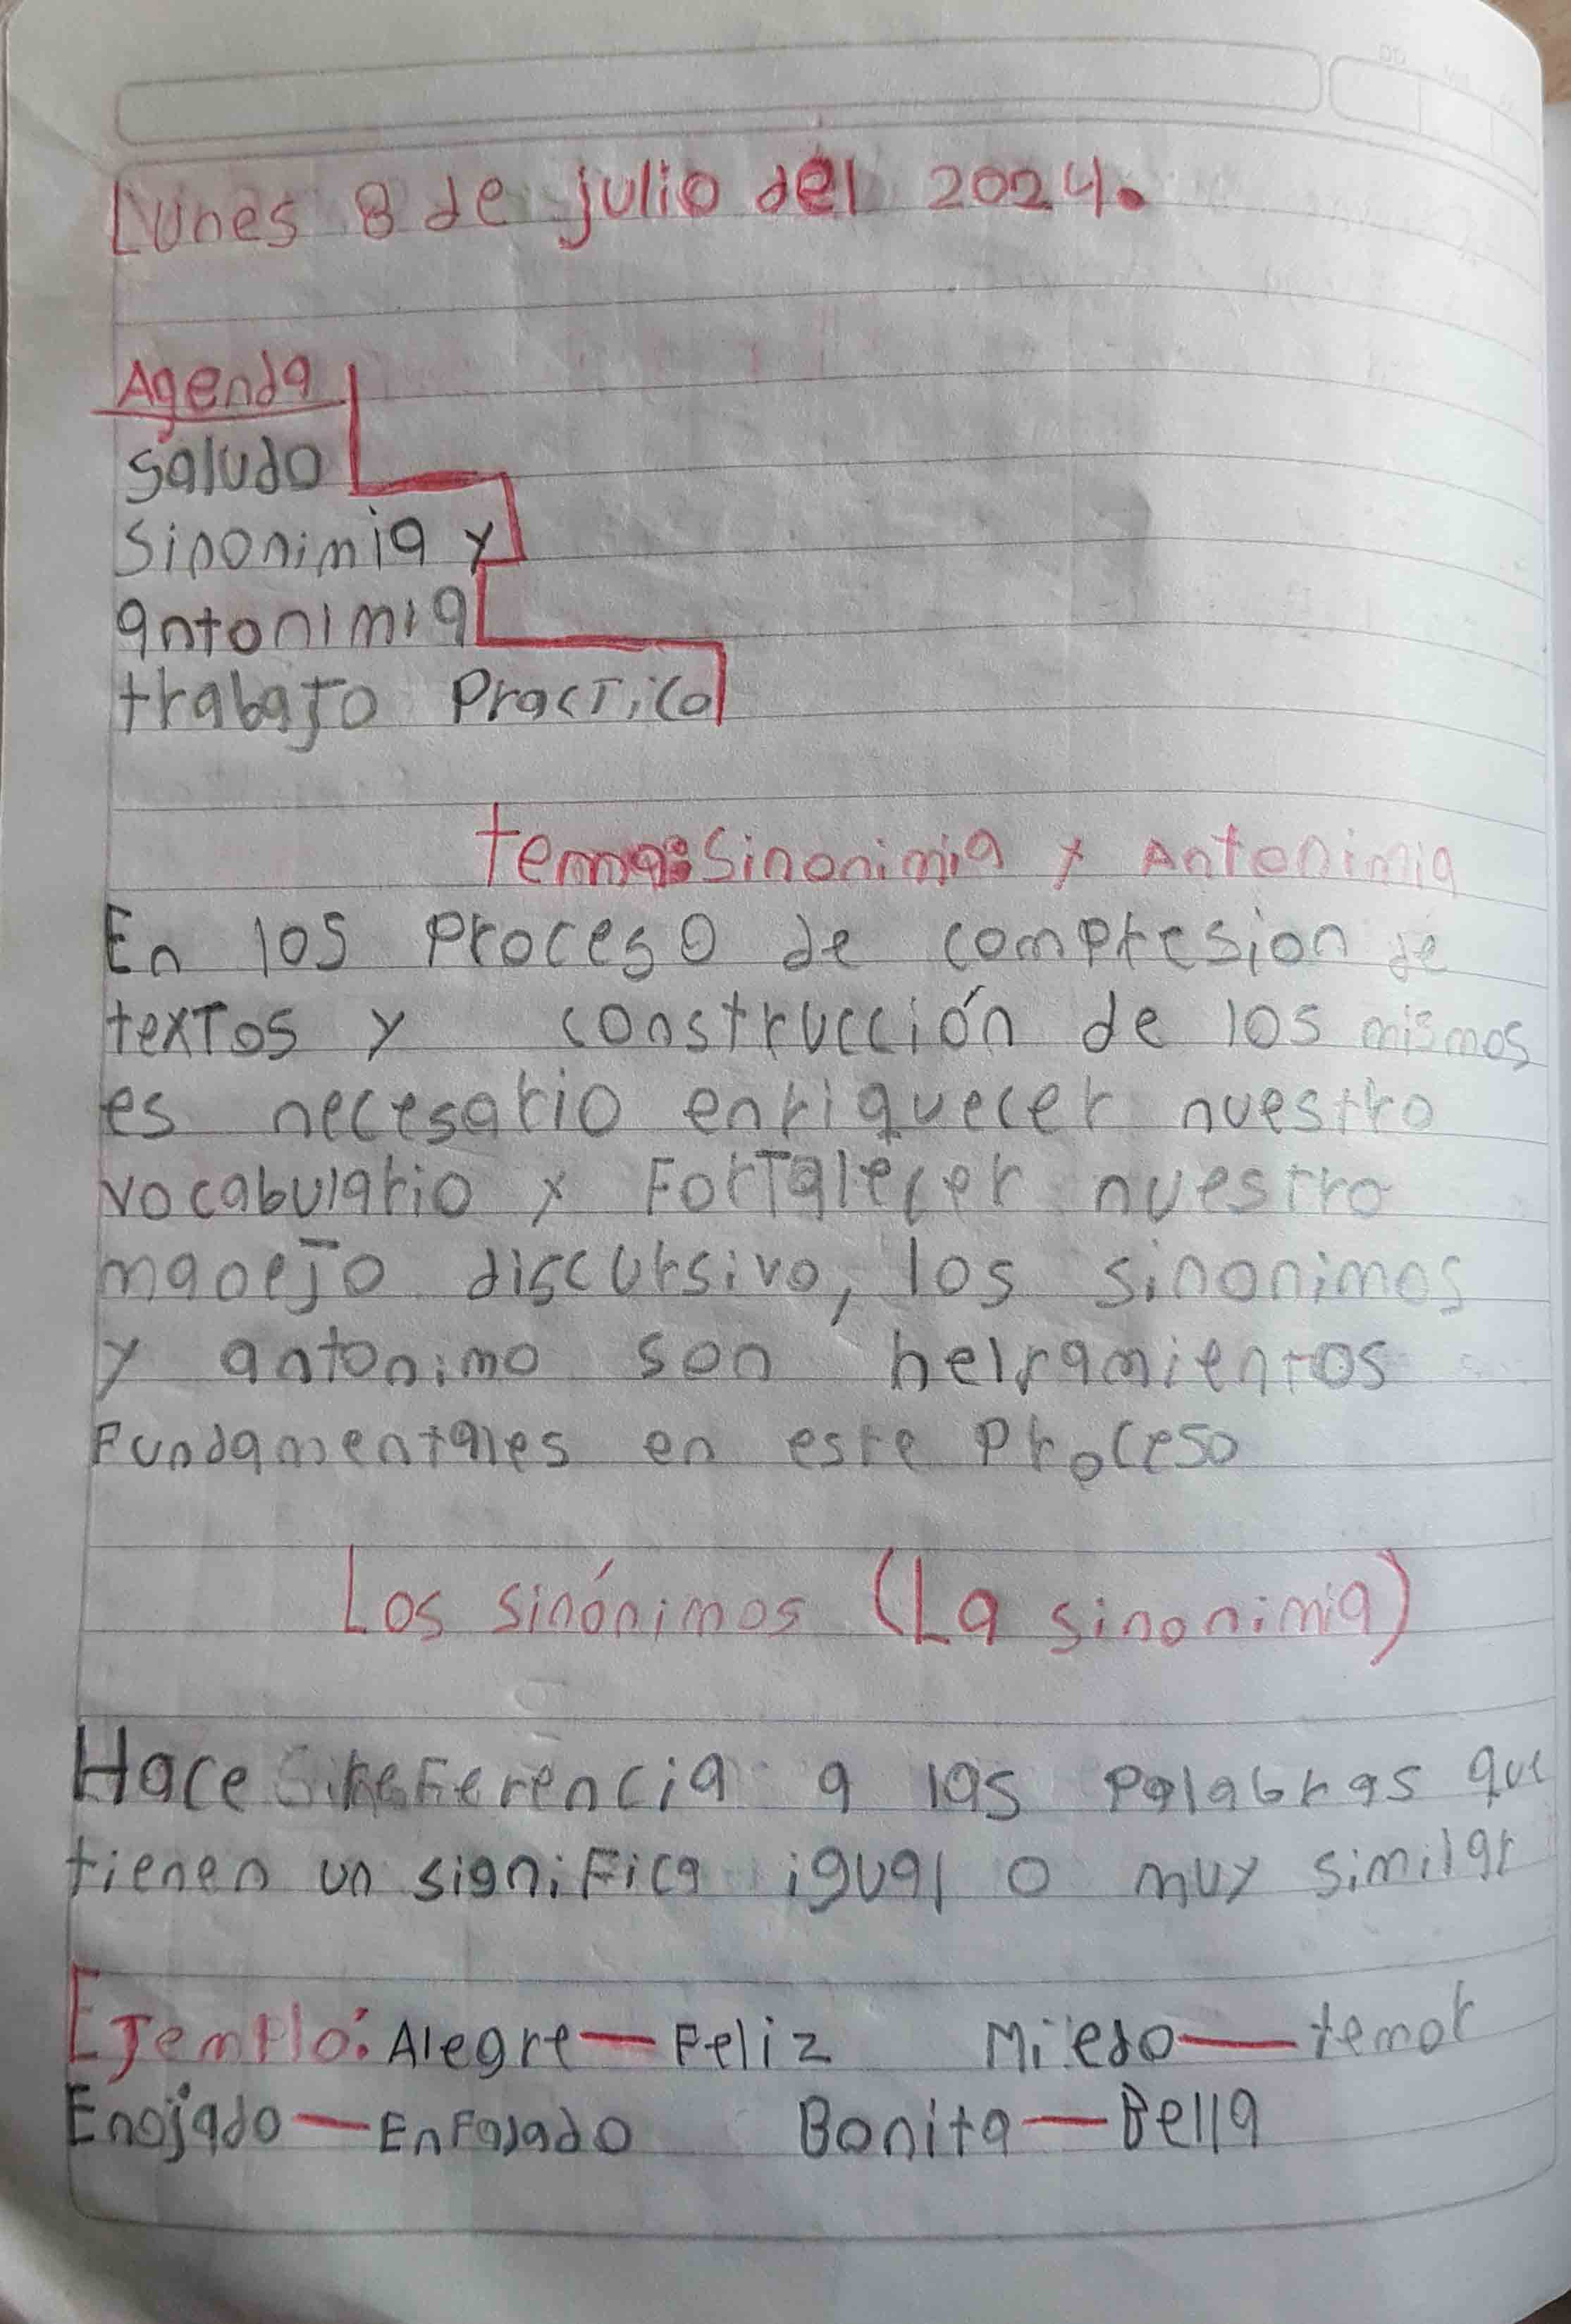 Lunes 8 de julio del 2024.
Agenda
Saludo
Sinonimia y
antonimia
trabajo Practico
tema: Sinonimia y Antonimia
En los Proceso de compresion de
textos y construcción de los mismos
es necesario enriquecer nuestro
vocabulario y Fortalecer nuestro
manejo discursivo, los sinonimos
y antonimo son helramientos
Fundamentales en este Proceso
Los sinónimos (La sinonimia)
Hace referencia a las Palabras que
tienen un significa igual o muy similar
Ejemplo: Alegre — Feliz Miedo — temor
Enojado — Enfadado Bonita — Bella